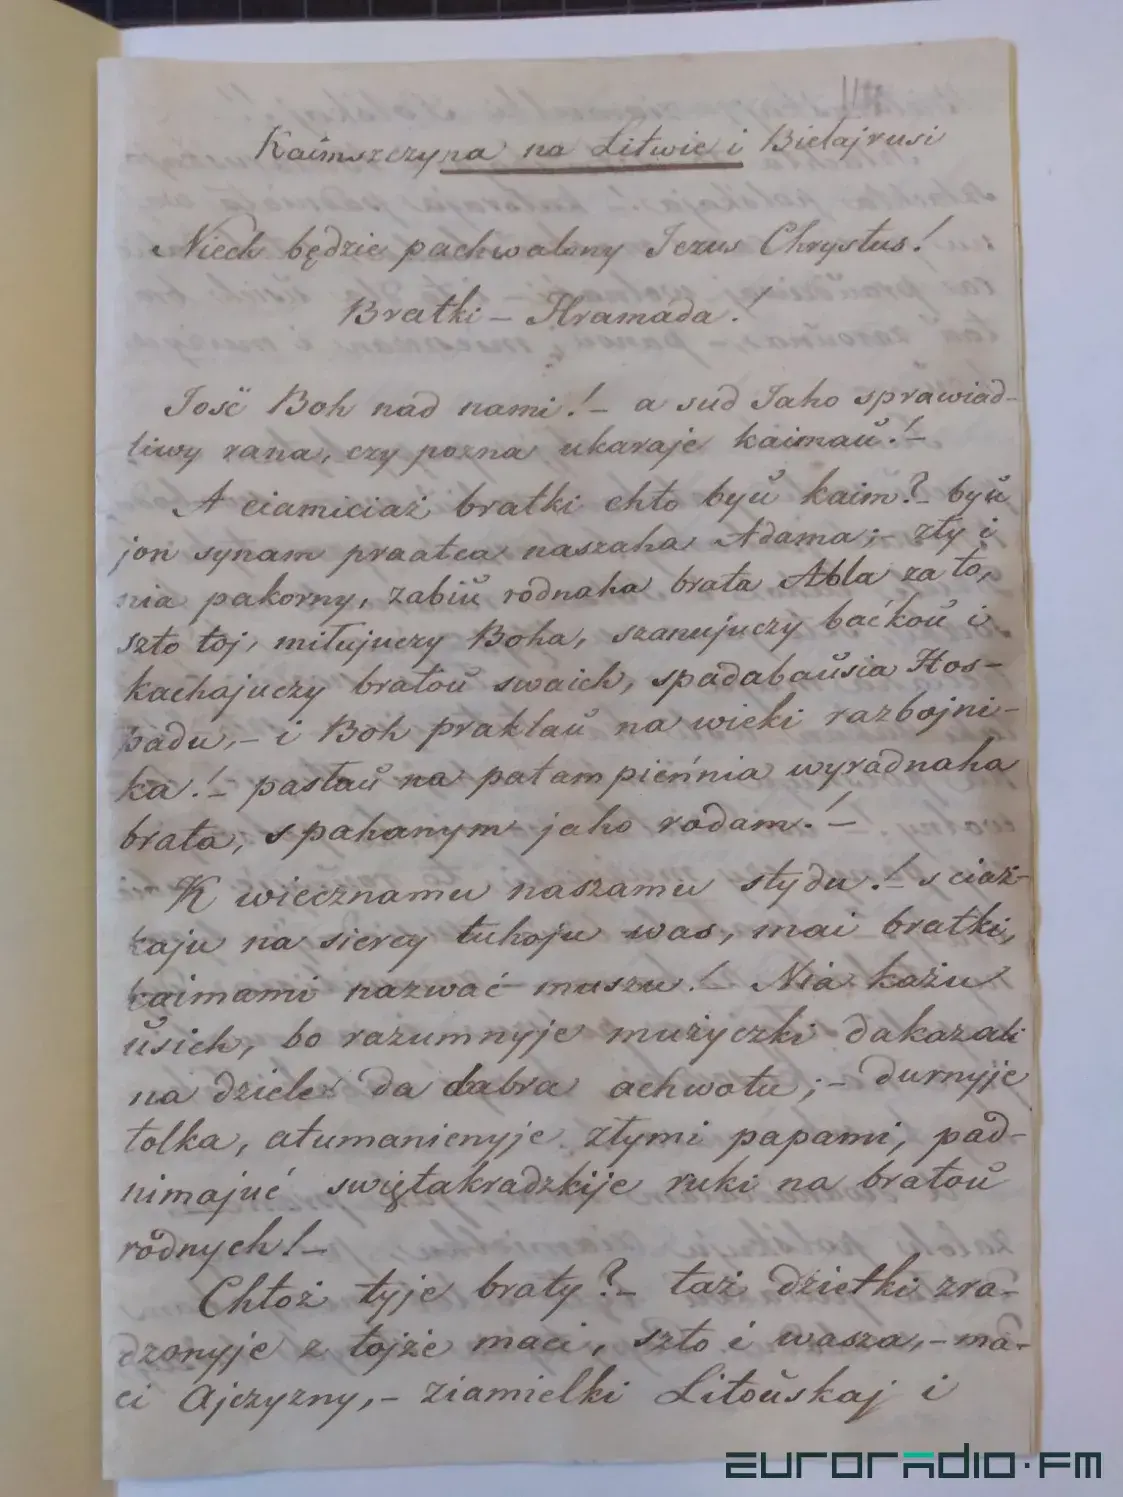 Kaimszczyna na Litwie i Biełajrusi
Niech będzie pachwalony Jezus Chrystus!
Bratki – Hramada!
Jość Boh nad nami! – a sud Jaho sprawiad-
liwy rana, czy pozna ukaraje kaimaŭ! –
A ciamiciaż bratki chto byŭ kaim? – byŭ
jon synam praatca naszaha Adama; – zły i
nia pakorny, zabiŭ rodnaha brata Abla za to,
szto toj, miłujuczy Boha, szanujuczy baćkoŭ i
kachajuczy bratoŭ swaich, spadabaŭsia Hos-
padu, – i Boh praklaŭ na wieki razbojni-
ka! – pastaŭ na patampieńnia wyradnaha
brata, s pahanym jaho rodam! –
K wiecznamu naszamu stydu! – s ciaż-
kaju na siercy tuhoju was, mai bratki,
kaimami nazwać muszu! – Nia każu
ŭsich, bo razumnyje mużyczki dakazali
na dziele da dabra achwotu; – durnyje
tolka, atumanienyje złymi papami, pad-
nimajuć swiętakradzkije ruki na bratoŭ
rodnych! –
Chtoż tyje braty? – taż dzietki zra-
dzonyje z tojże maci, szto i wasza, – ma-
ci Ajczyzny, – ziamielki Litoŭskaj i
EURORADIO.FM